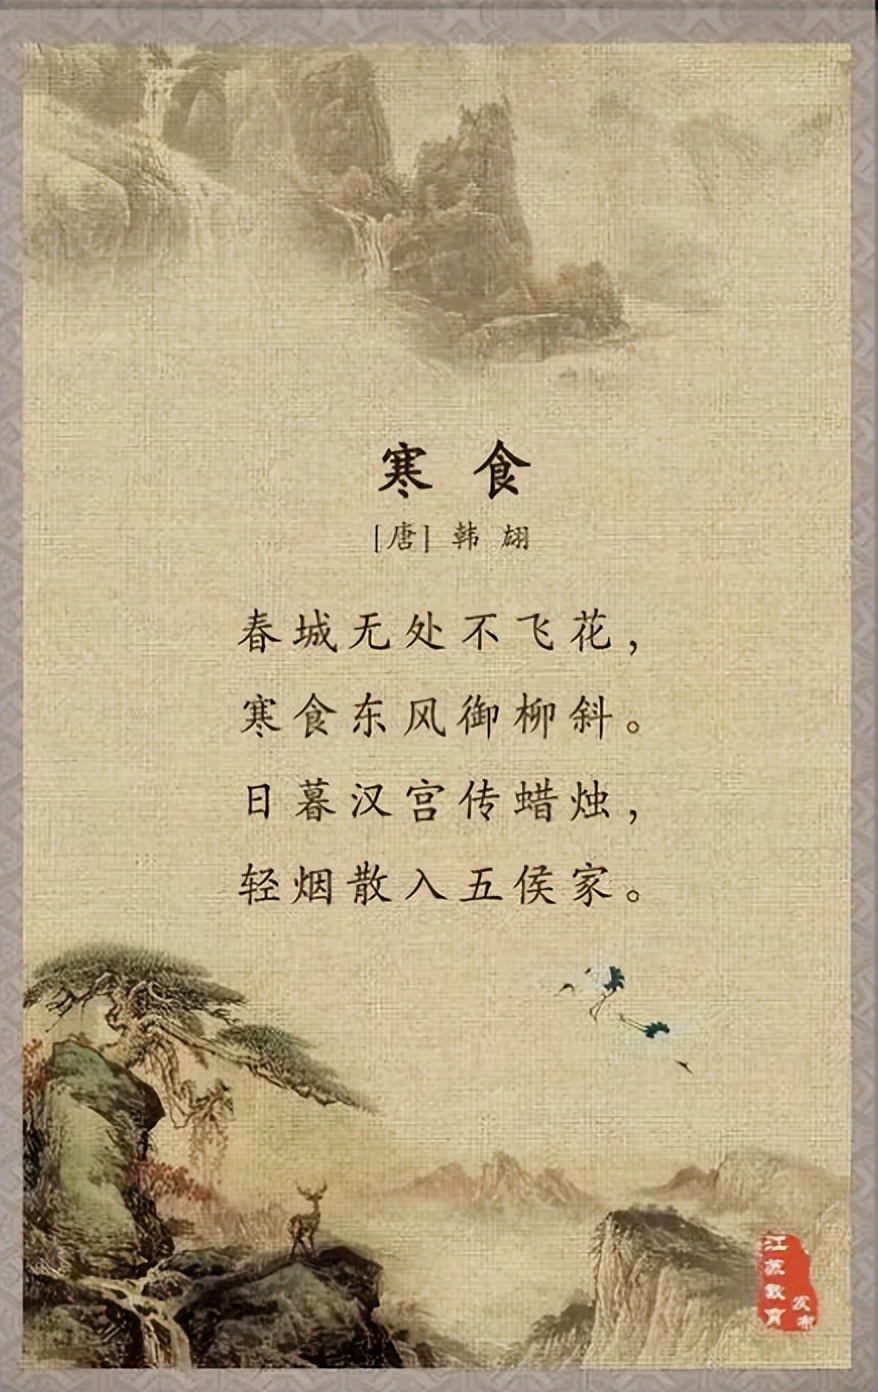 寒 食
[唐] 韩 翃
春城无处不飞花，
寒食东风御柳斜。
日暮汉宫传蜡烛，
轻烟散入五侯家。
江苏教育
发布